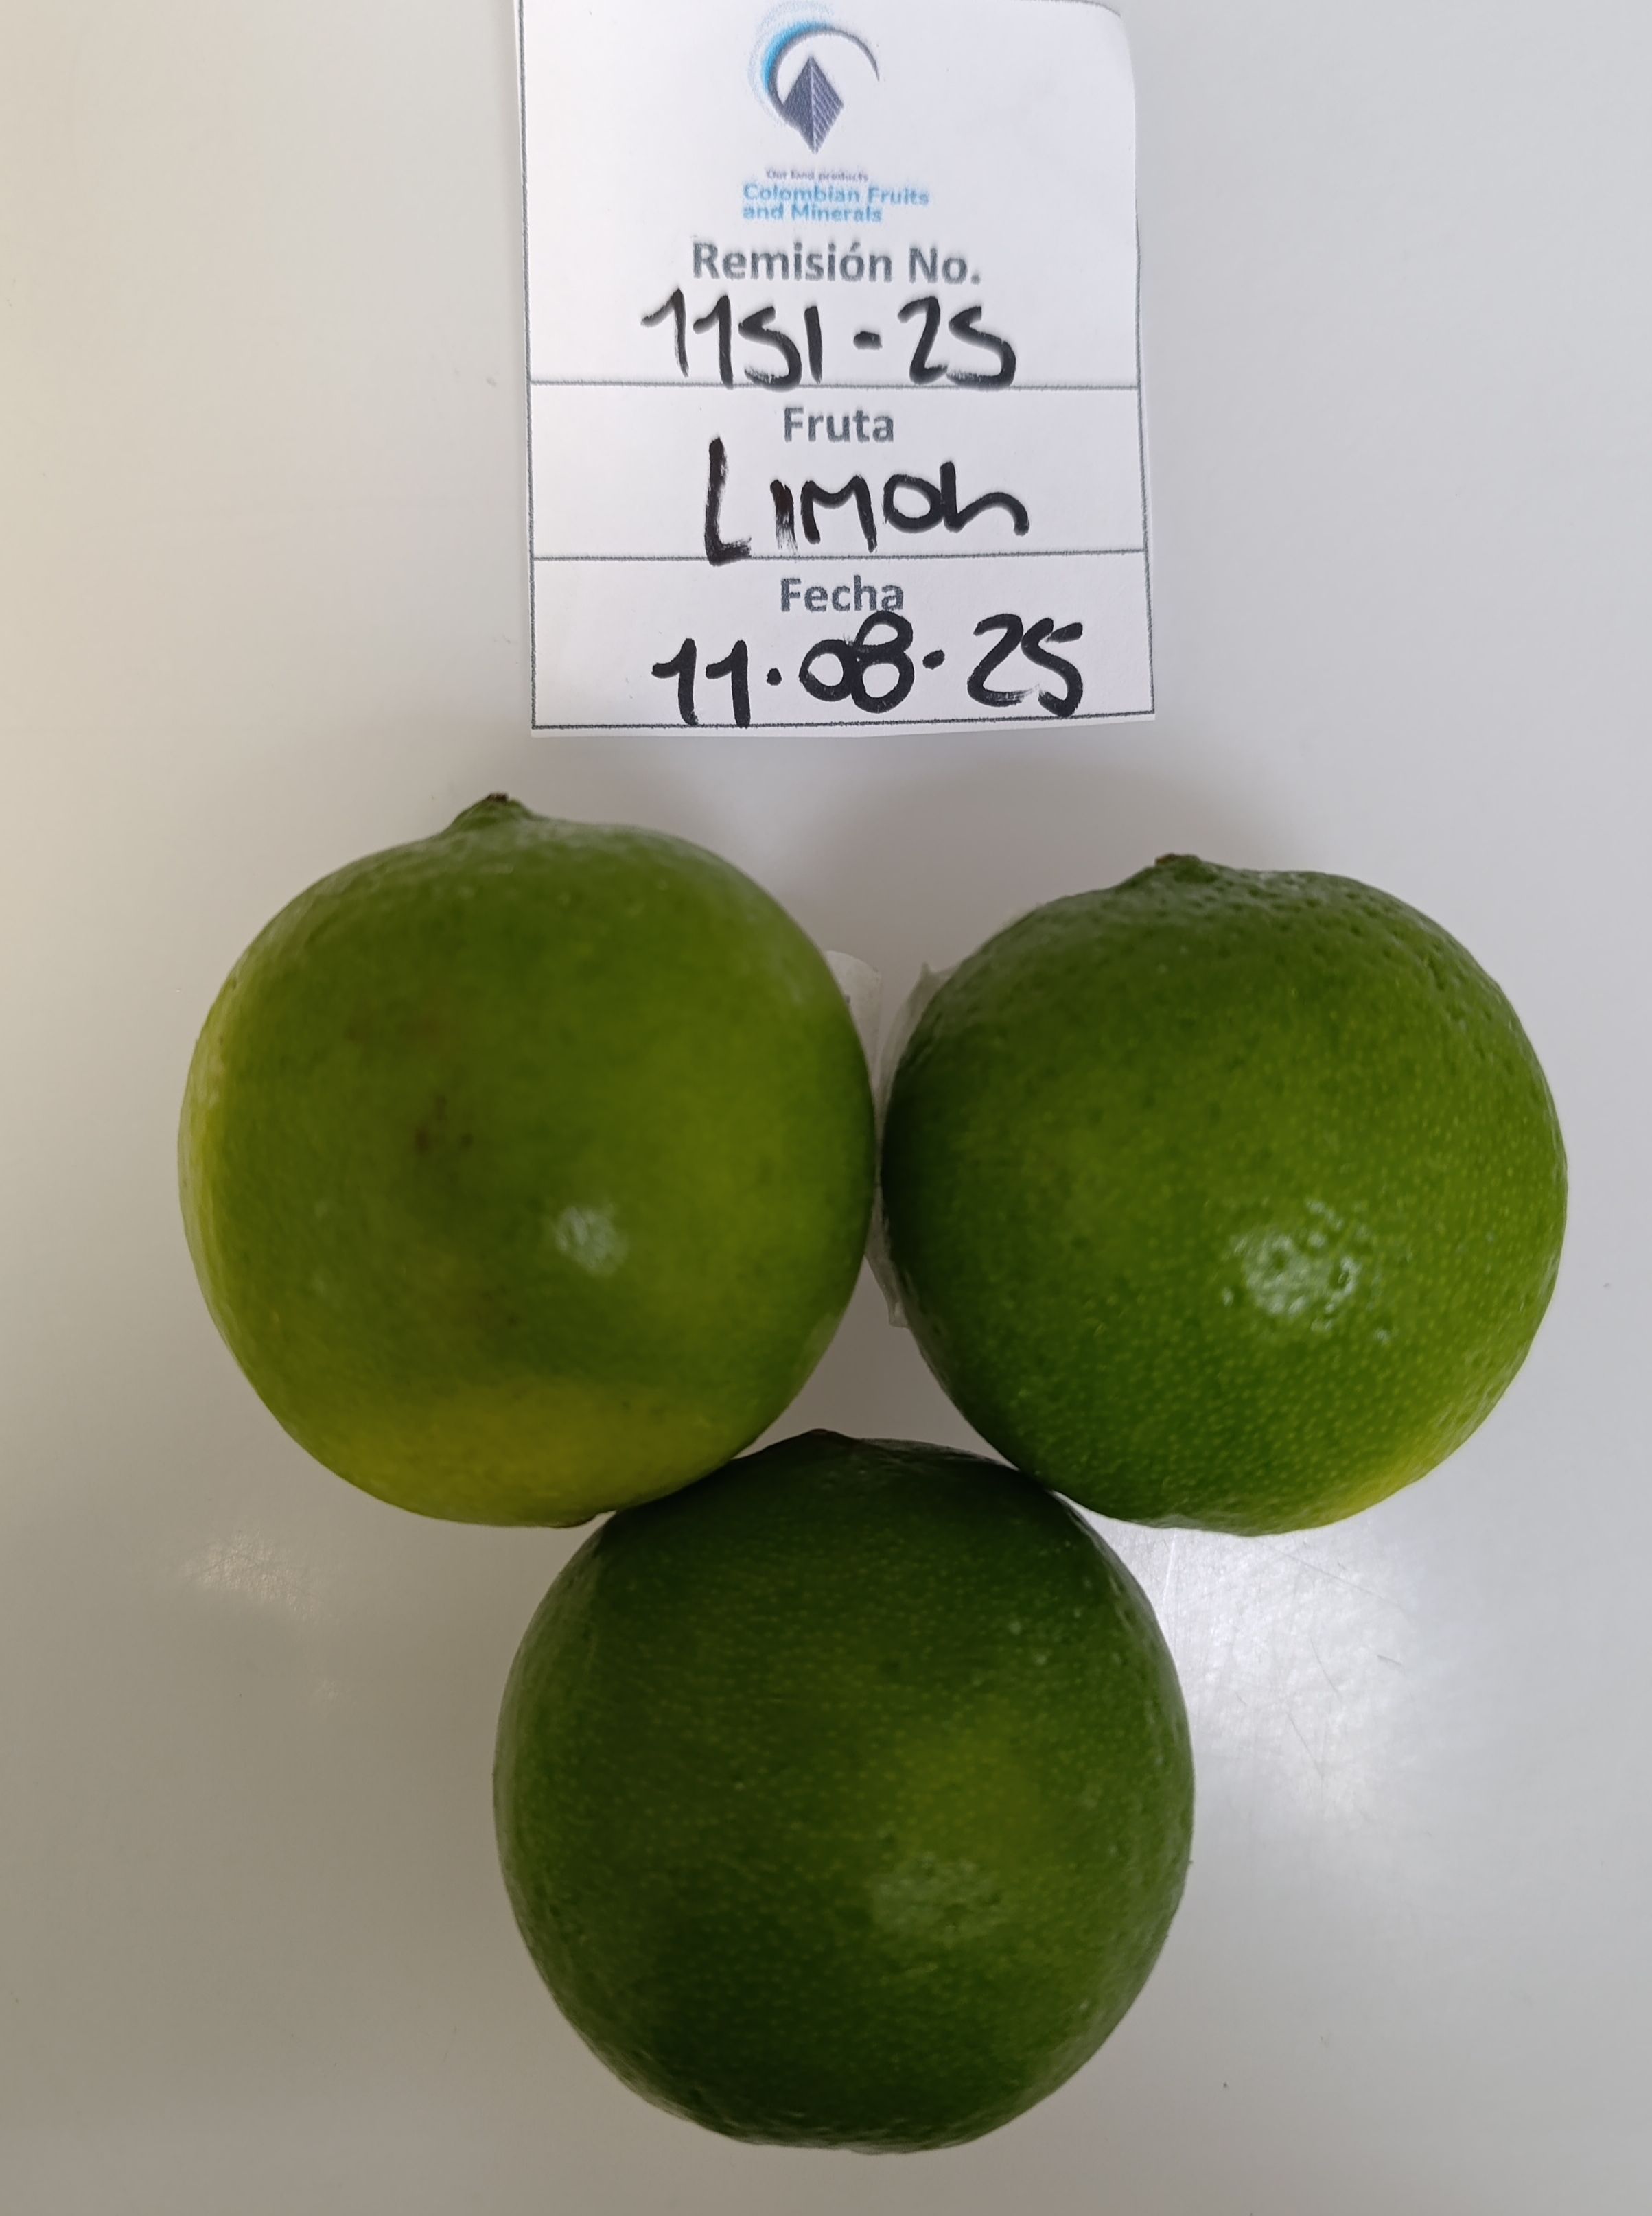 Our land products
Colombian Fruits
and Minerals
Remisión No.
1151-25
Fruta
Limon
Fecha
11.08.25